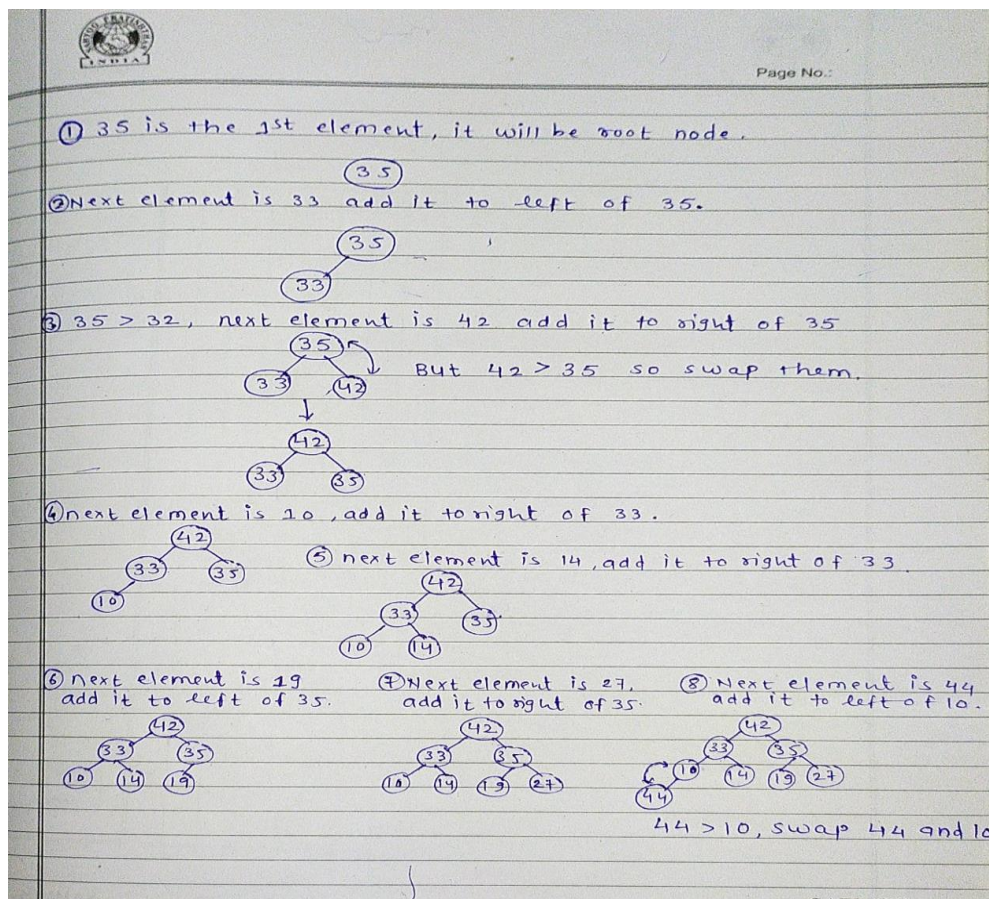 INDIA
Page No.:
① 35 is the 1st element, it will be root node.
35
② Next element is 33 add it to left of 35.
35
33
③ 35 > 32, next element is 42 add it to right of 35
35
33 42
But 42 > 35 so swap them.
42
33 35
④ next element is 10, add it to right of 33.
42
33 35
10
⑤ next element is 14, add it to right of 33.
42
33 35
10 14
⑥ next element is 19
add it to left of 35.
42
33 35
10 14 19
⑦ Next element is 27.
add it to right of 35.
42
33 35
10 14 19 27
⑧ Next element is 44
add it to left of 10.
42
33 35
10 14 19 27
44
44 > 10, swap 44 and 10